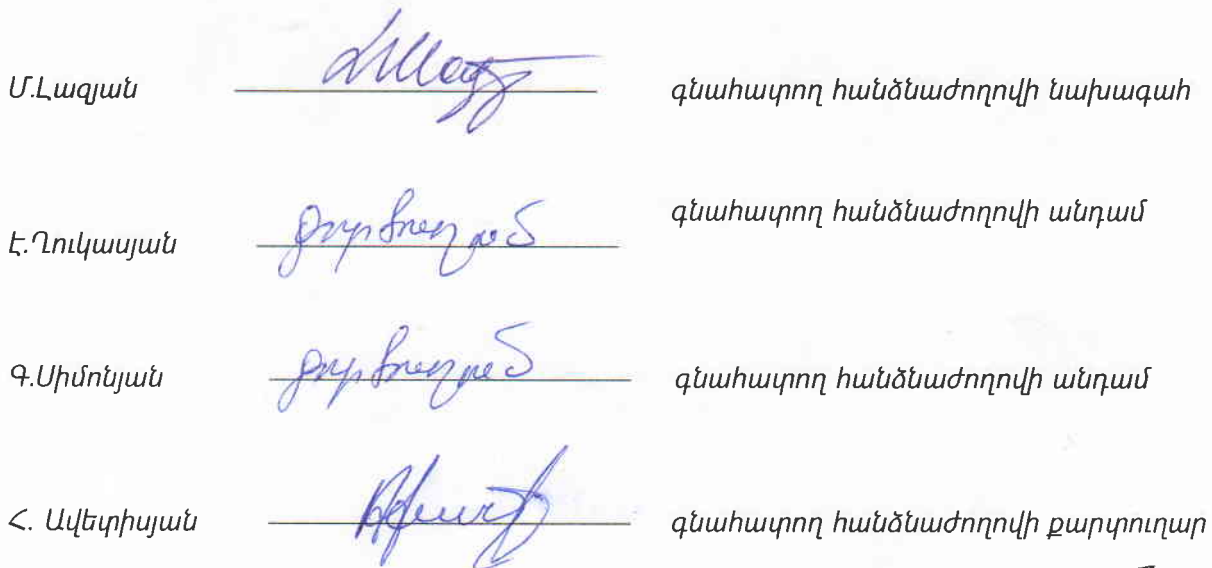 Մ.Լազյան գնահատող հանձնաժողովի նախագահ
Է.Ղուկասյան գնահատող հանձնաժողովի անդամ
Գ.Սիմոնյան գնահատող հանձնաժողովի անդամ
Հ. Ավետիսյան գնահատող հանձնաժողովի քարտուղար